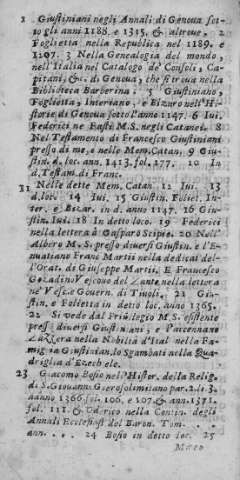 1 Giustiniani negli Annali di Genoua sot-
to gli anni 1188. e 1315. & altroue, 2
Foglietta nella Republica nel 1189. e
1207. 3 Nella Genealogia del mondo,
nell'Italia nel Catalogo de' Consoli, Ca-
pitani, &c. di Genoua, che si troua nella
Biblioteca Barberina. 5 Giustiniano,
Foglietta, Interiano, e Bizaro nell'Hi-
storie di Genoua sotto l'anno 1147. 6 Iui.
Federici ne Fasti M.S. negli Catanei. 8
Nel Testamento di Francesco Giustiniani
presso di me, e nelle Mem. Catan. 9 Giu-
stin. d. loc. ann. 1413. fol. 177. 10 In
d. Testam. di Franc.
11 Nelle dette Mem. Catan. 12 Iui. 13
d. loc. 14 Iui. 15 Giustin. Foliet. In-
ter. e Bizar. in d. anno 1147. 16 Giu-
stin. Iui. 18 In detto loco. 19 Federici
nella lettera à Gasparo Scipio. 20 Nell'
Albero M.S. presso diuersi Giustin. e l'E-
nuatiano Franc Martii nella dedicat. del-
l'Orat. di Giuseppe Martii. E Francesco
Gozadino Vescouo del Zante nella lettera
ne' Vesc. e Gouern. di Tiuoli. 21 Giu-
stin. e Folietta in detto loc. anno 1365.
22 Si vede dal Priuilegio M.S. esistente
press. diuersi Giustiniani, e l'accennano
Zazzera nella Nobiltà d'Ital. nella Fa-
miglia Giustinian. lo Sgambati nella Qua-
driglia d'Ezechele.
23 Giacomo Bosio nell'Histor. della Relig.
di S. Giouanni Gierosolimitano par. 2. li. 3.
anno 1366. fol. 106. e 107. & ann. 1371.
fol. 111. & Odorico nella Contin. degli
Annali Ecclesiast. del Baron. Tom. . . .
ann. . . . 24 Bosio in detto loc. 25